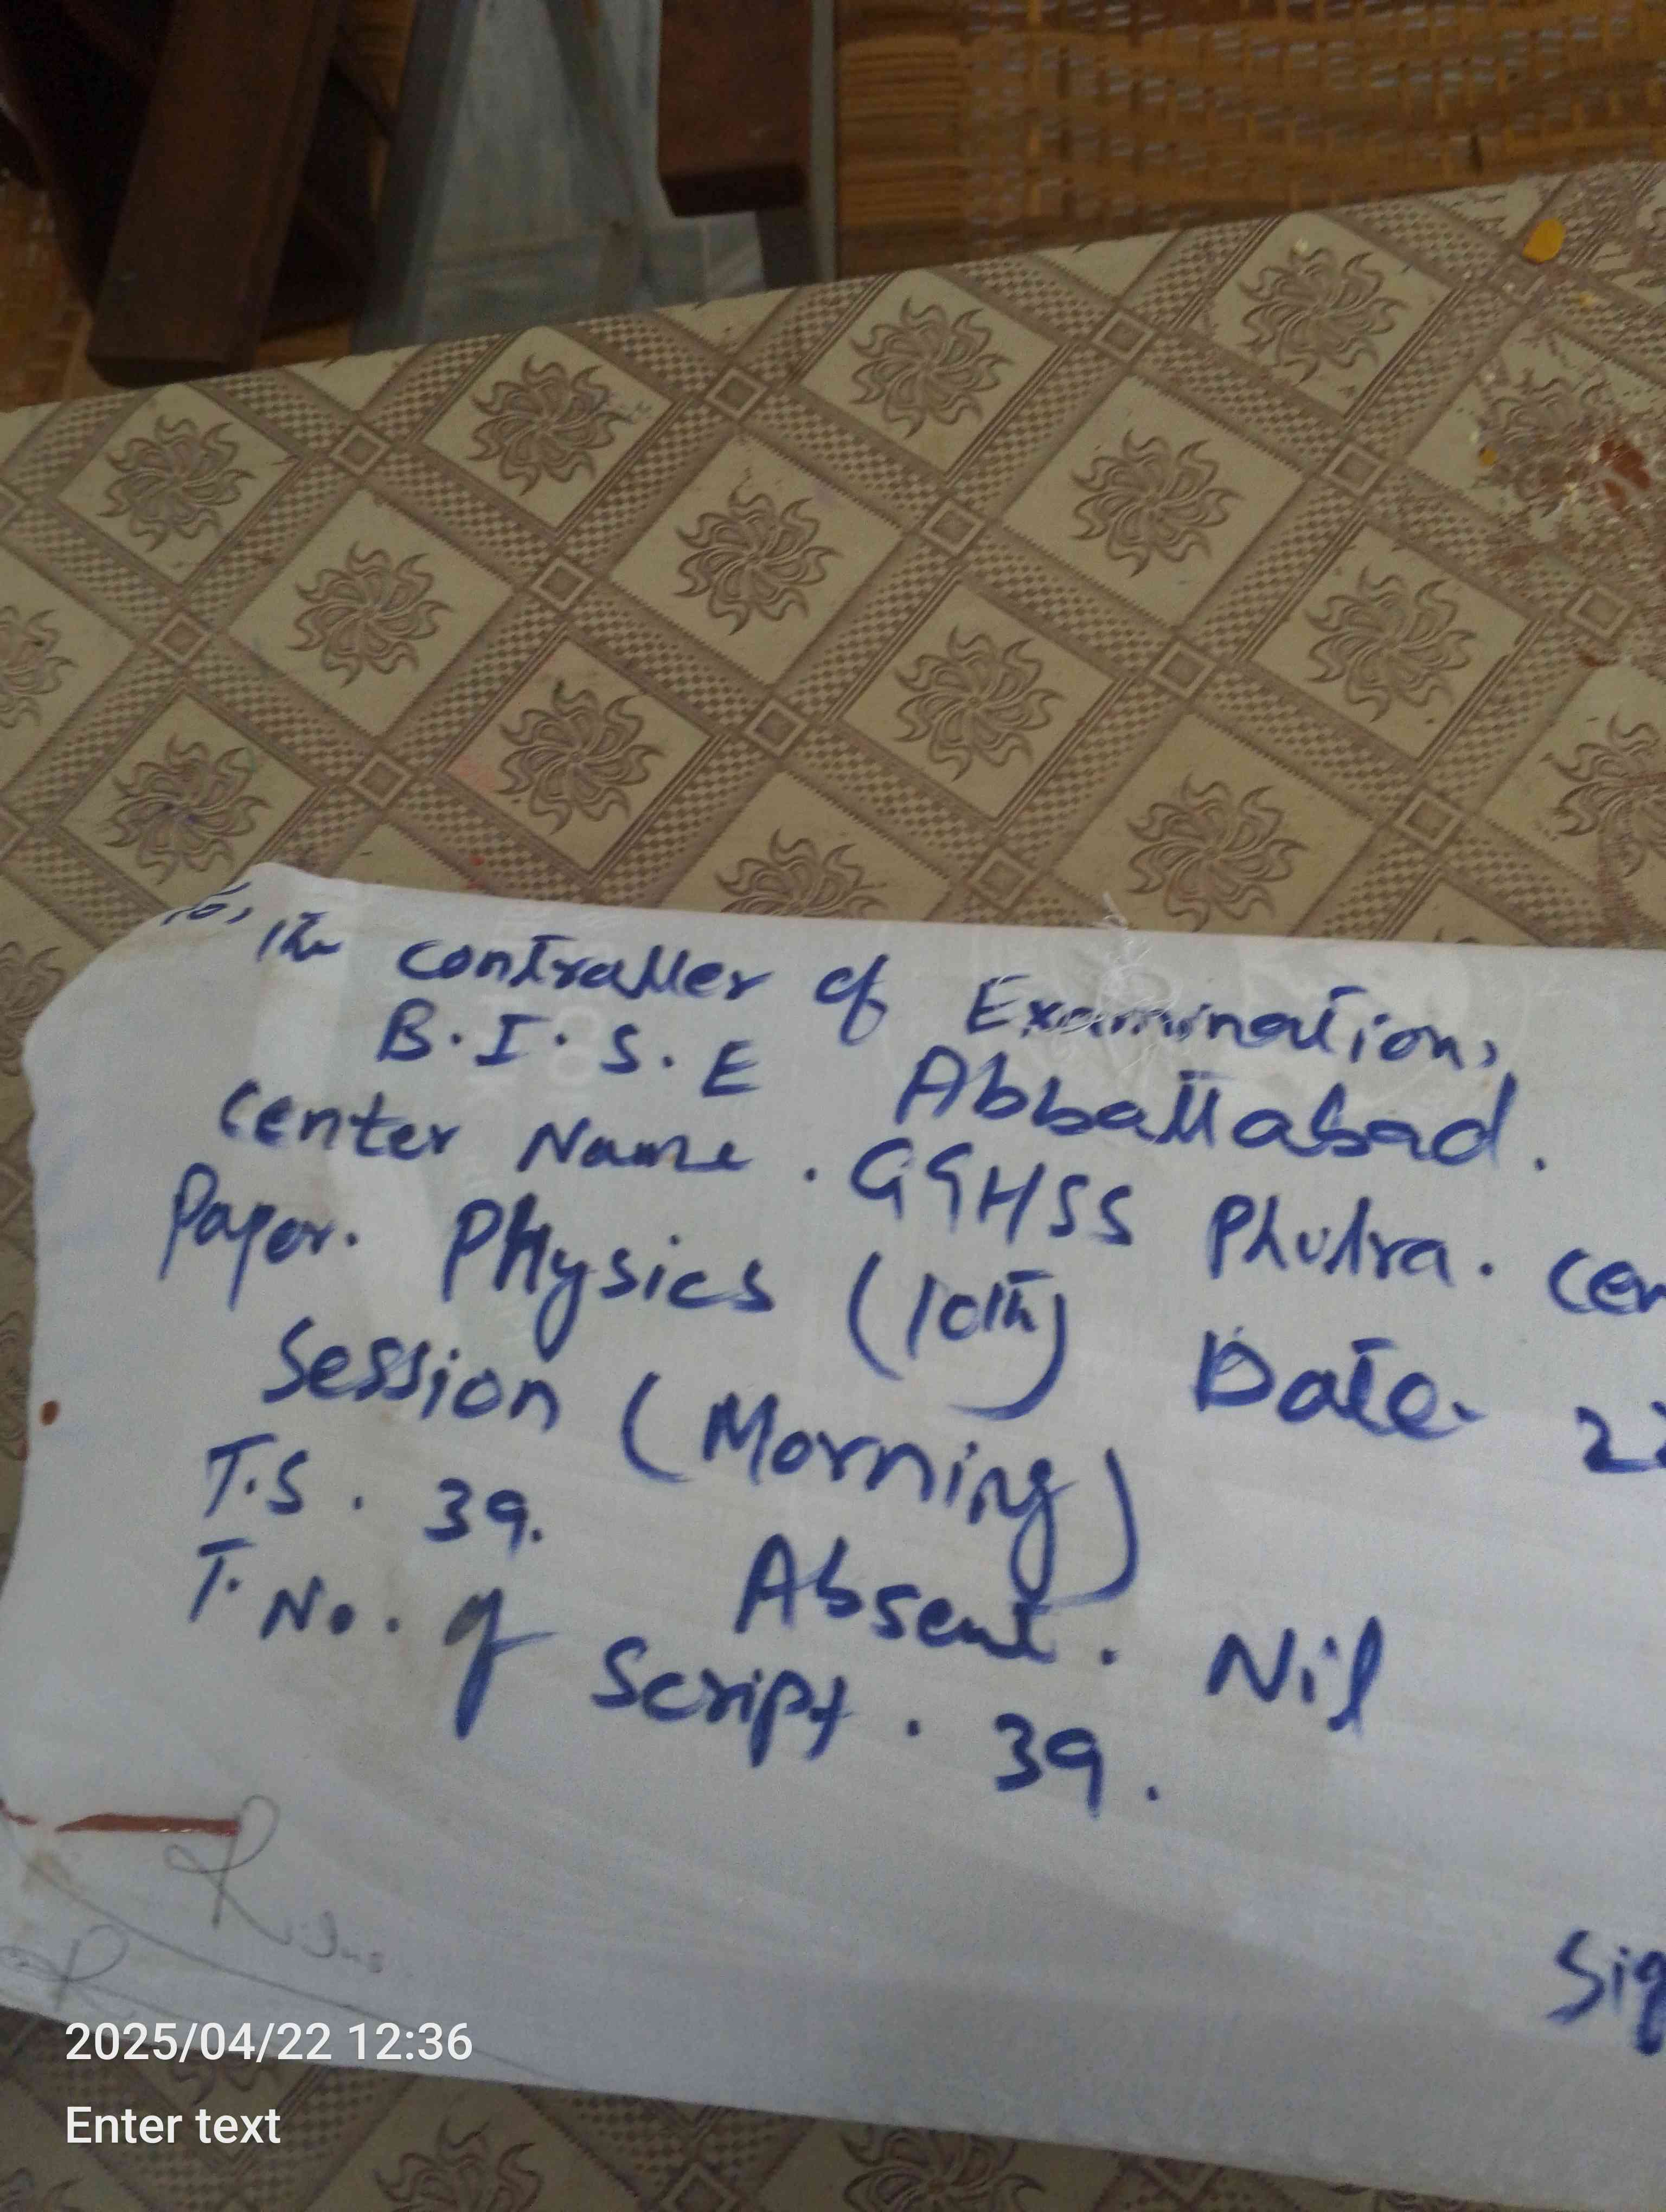 To, The Controller of Examination,
B.I.S.E Abbottabad.
Center Name. GGHSS Phulra. Cen
Paper. Physics (10th) Date. 22
Session (Morning)
T.S. 39. Absent. Nil
T. No. of Script. 39.
Sig
2025/04/22 12:36
Enter text